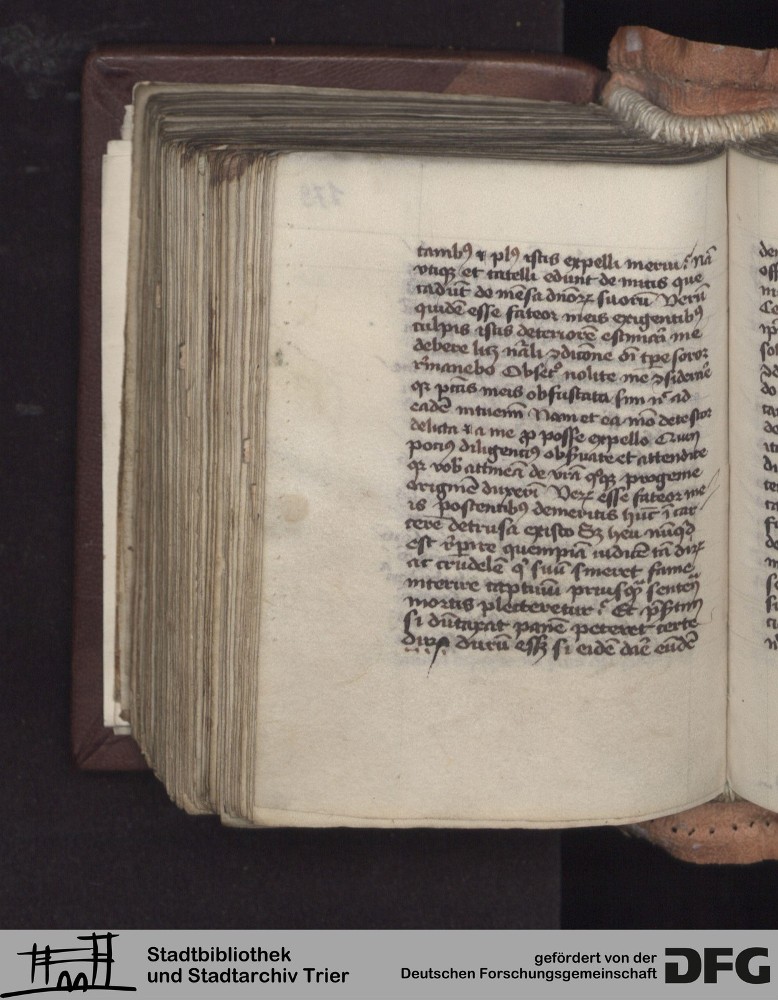 tambꝰ ⁊ plꝰ istis expelli merui? Nā
vtiqꝫ et catelli edunt de micis que
cadūt de mēsa dnoꝝ suoꝝ Verū
quidē esse fateor meis exigentibꝰ
culpis istis deteriorē estimari me
debere licꝫ nāli ꝯdicōne oī tpe soror
rͤmanebo Obsecͦ nolite me ꝯsiderare
qꝛ pctis meis obfuscata sum nͨ ad
eadē intuemī Nam et ea mō detestor
delicta ⁊ a me ꝓ posse expello
pociꝰ diligenciꝰ obẜuate et attendite
qꝛ vob attineā de vrā qͣqꝫ progeme
origīnē duxerī Veꝝ esse fateor me
is poscentibꝰ demeritis hūc ī car
cerē detrusa existo Sꝫ heu nūqͥd
est rͤpīre quempiā iudicē tā
ac crudelē qͥ suū sineret fame
interire captiuū priusqͣ senten
mortis plecteretur? Et
si dūtaxat panē peteret certe
durū essꝫ si eidē dāē eūdē
Stadtbibliothek
und Stadtarchiv Trier
gefördert von der
Deutschen Forschungsgemeinschaft
DFG